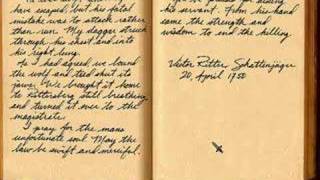 have escaped but his fatal
mistake was to attack rather
than run. My dagger struck
through his chest and into
his right lung.
As I had agreed, we bound
the wolf and tied shut its
jaws. We brought it home
to Rittersberg still breathing
and turned it over to the
magistrate.
I pray for the mans
unfortunate soul. May the
law be swift and merciful.
his servant. From his hand
came the strength and
wisdom to end the killing.
Victor Ritter, Schattenjäger
20, April 1750